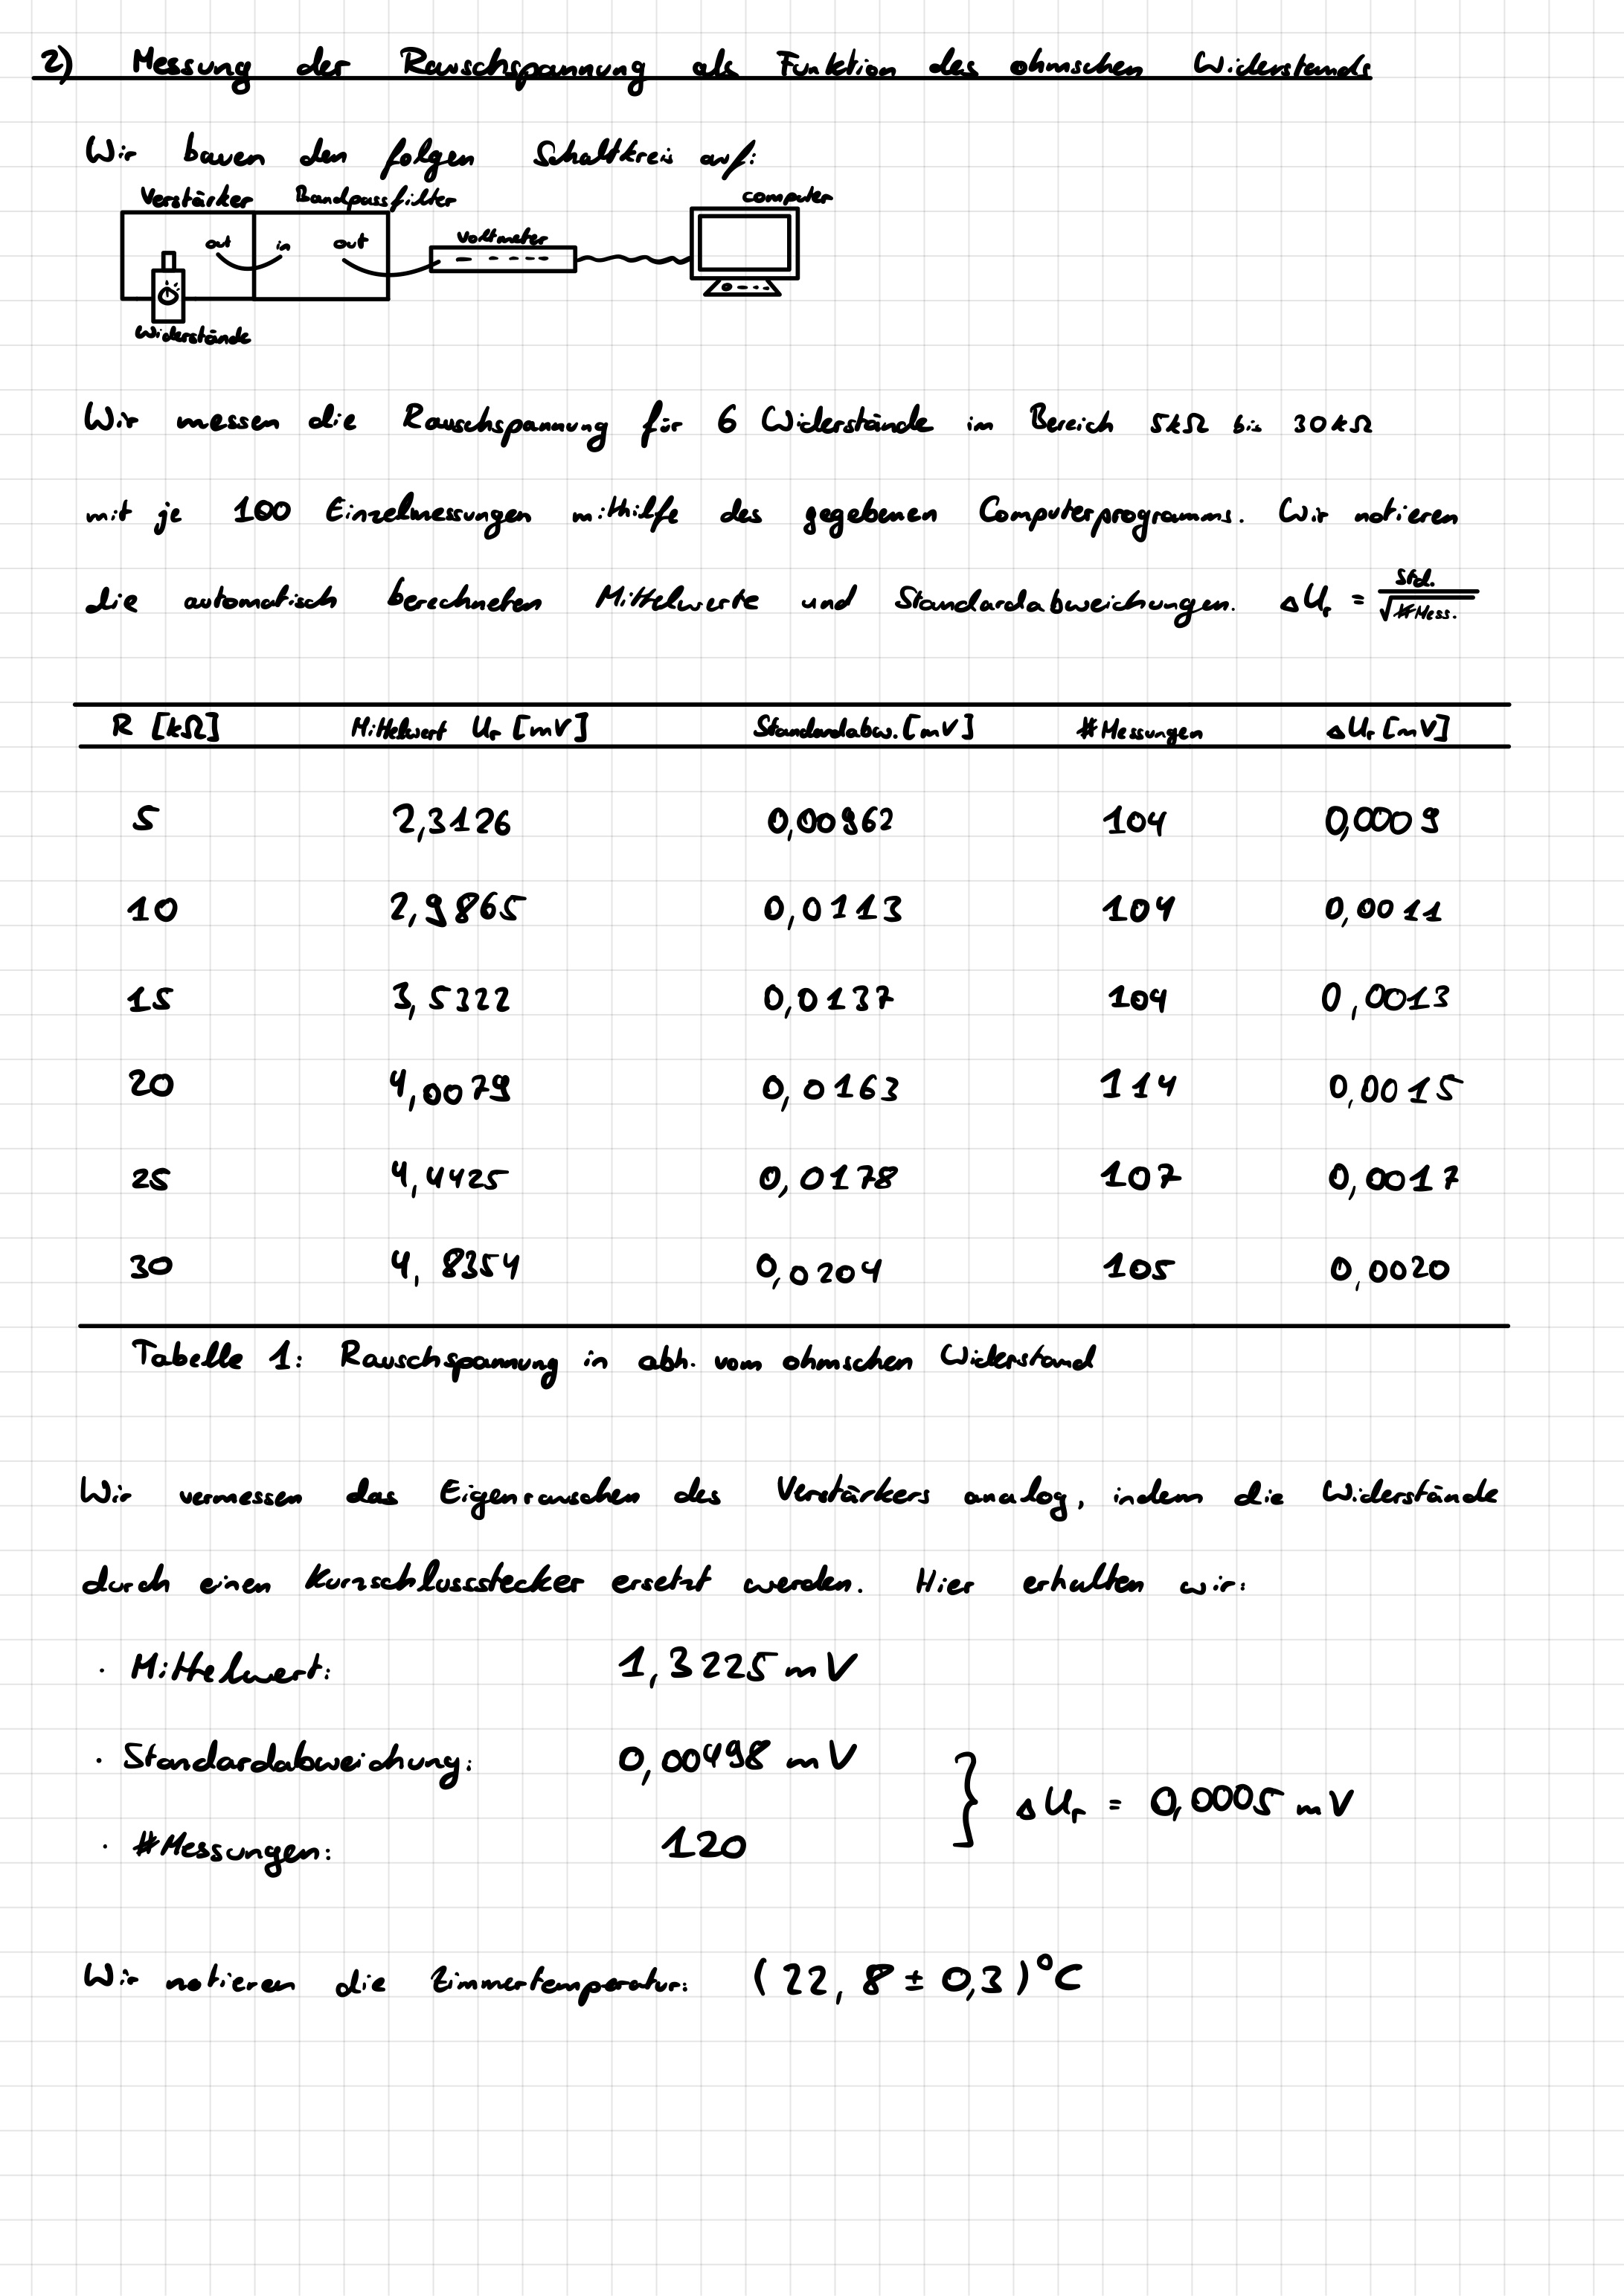 2) Messung der Rauschspannung als Funktion des ohmschen Widerstands
Wir bauen den folgen Schaltkreis auf:
Verstärker Bandpassfilter computer
out in out voltmeter
Widerstände
Wir messen die Rauschspannung für 6 Widerstände im Bereich 5kΩ bis 30kΩ
mit je 100 Einzelmessungen mithilfe des gegebenen Computerprogramms. Wir notieren
die automatisch berechneten Mittelwerte und Standardabweichungen. ΔUᵣ = Std. / √#Mess.
R [kΩ] Mittelwert Uᵣ [mV] Standardabw. [mV] #Messungen ΔUᵣ [mV]
5 2,3126 0,00962 104 0,0009
10 2,9865 0,0113 104 0,0011
15 3,5322 0,0137 104 0,0013
20 4,0079 0,0163 114 0,0015
25 4,4425 0,0178 107 0,0017
30 4,8354 0,0204 105 0,0020
Tabelle 1: Rauschspannung in abh. vom ohmschen Widerstand
Wir vermessen das Eigenrauschen des Verstärkers analog, indem die Widerstände
durch einen Kurzschlussstecker ersetzt werden. Hier erhalten wir:
· Mittelwert: 1,3225 mV
· Standardabweichung: 0,00498 mV
} ΔUᵣ = 0,0005 mV
· #Messungen: 120
Wir notieren die Zimmertemperatur: (22,8 ± 0,3)°C